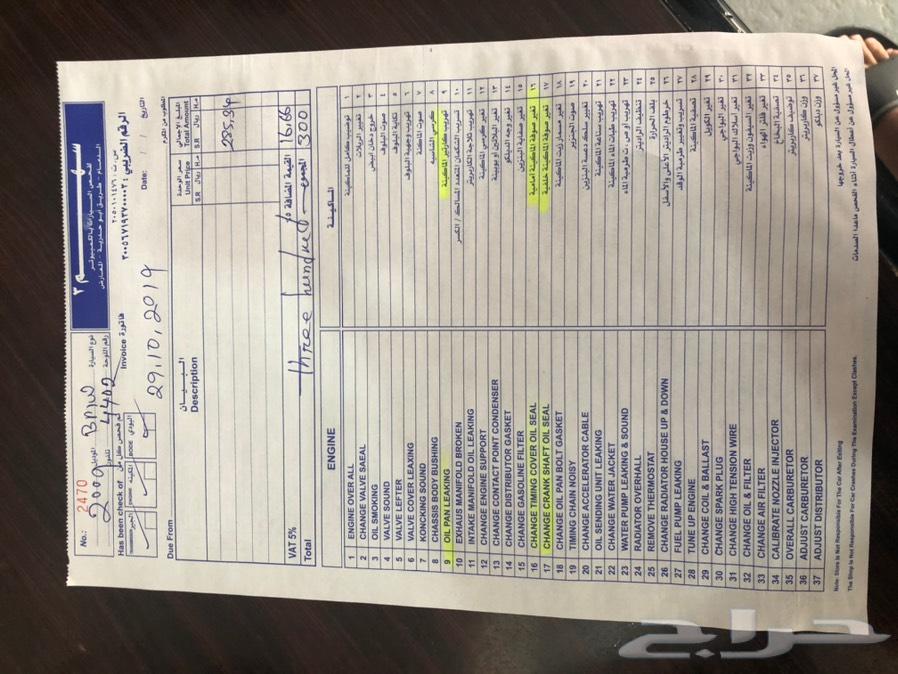 No. 2470
سهم ٣
لفحص السيارات بالكمبيوتر
الدمام - طريق ابو حدرية - المعارض
2009
BMW
نوع السيارة
4402
رقم اللوحة
Has been check of
فاتورة Invoice
الرقم الضريبي:
Date:
التاريخ
29,10,2019
Due From
المطلوب من المكرم
البيان
Description
سعر الوحدة
Unit Price
المبلغ الإجمالي
Total Amount
S.R
ريال
هـ H.
S.R
ريال
هـ H.
VAT 5%
القيمة المضافة ٥٪
16,66
Total
three hundred
المجموع
300
ENGINE
الماكينة
1 ENGINE OVER ALL توضيب كامل للماكينة ١
2 CHANGE VALVE SAEAL تغيير الربلات ٢
3 OIL SMOKING خروج دخان ابيض ٣
4 VALVE SOUND صوت البلوف ٤
5 VALVE LEFTER تكاية البلوف ٥
6 VALVE COVER LEAXING تهريب وجيهة البلوف ٦
7 KONCKING SOUND صوت الماكينة ٧
8 CHASSIS BODY BUSHING كراسي الشاسيه ٨
9 OIL PAN LEAKING تهريب كارتير الماكينة ٩
10 EXHAUS MANIFOLD BROKEN تسريب الشكمان المتعدد المسالك / الكسر ١٠
11 INTAKE MANIFOLD OIL LEAKING تهريب ثلاجة الماكينة ١١
12 CHANGE ENGINE SUPPORT تغيير كراسي الماكينة ١٢
13 CHANGE CONTACT POINT CONDENSER تغيير البلاتين او بوبينة ١٣
14 CHANGE DISTRIBUTOR GASKET تغيير وجه الدينكو ١٤
15 CHANGE GASOLINE FILTER تغيير صفاية البنزين ١٥
16 CHANGE TIMING COVER OIL SEAL تغيير صوفة الماكينة امامية ١٦
17 CHANGE CRANK SHAFT OIL SEAL تغيير صوفة الماكينة خلفية ١٧
18 CHANGE OIL PAN BOLT GASKET ١٨
19 TIMING CHAIN NOISY صوت الجنزير ١٩
20 CHANGE ACCELERATOR CABLE تغيير سلك دعسة البنزين ٢٠
21 OIL SENDING UNIT LEAKING تهريب ساعة الماكينة ٢١
22 CHANGE WATER JACKET تغيير طبات ماء الماكينة ٢٢
23 WATER PUMP LEAKING & SOUND تهريب او صوت طرمبة الماء ٢٣
24 RADIATOR OVERHALL تنظيف الراديتر ٢٤
25 REMOVE THERMOSTAT بلف الحرارة ٢٥
26 CHANGE RADIATOR HOUSE UP & DOWN خرطوم الراديتر الأعلى والأسفل ٢٦
27 FUEL PUMP LEAKING تسريب وتغيير طرمبة الوقد ٢٧
28 TUNE UP ENGINE تصفية الماكينة ٢٨
29 CHANGE COIL & BALLAST تغيير الكويل ٢٩
30 CHANGE SPARK PLUG تغيير البواجي ٣٠
31 CHANGE HIGH TENSION WIRE تغيير اسلاك البواجي ٣١
32 CHANGE OIL & FILTER تغيير السيفون وزيت الماكينة ٣٢
33 CHANGE AIR FILTER تغيير فلتر الهواء ٣٣
34 CALIBRATE NOZZLE INJECTOR تصفية البخاخ ٣٤
35 OVERALL CARBURETOR توضيب كاربريتر ٣٥
36 ADJUST CARBURETOR وزن كاربريتر ٣٦
37 ADJUST DISTRIBUTOR وزن دينكو ٣٧
Note: Store is Not Responsible For The Car After Exiting
المحل غير مسؤول عن السيارة بعد خروجها
The Shop is Not Responsible For Car Crashes During The Examination Except Clashes.
المحل غير مسؤول عن اعطال السيارة أثناء الفحص ماعدا الصدمات
حراج